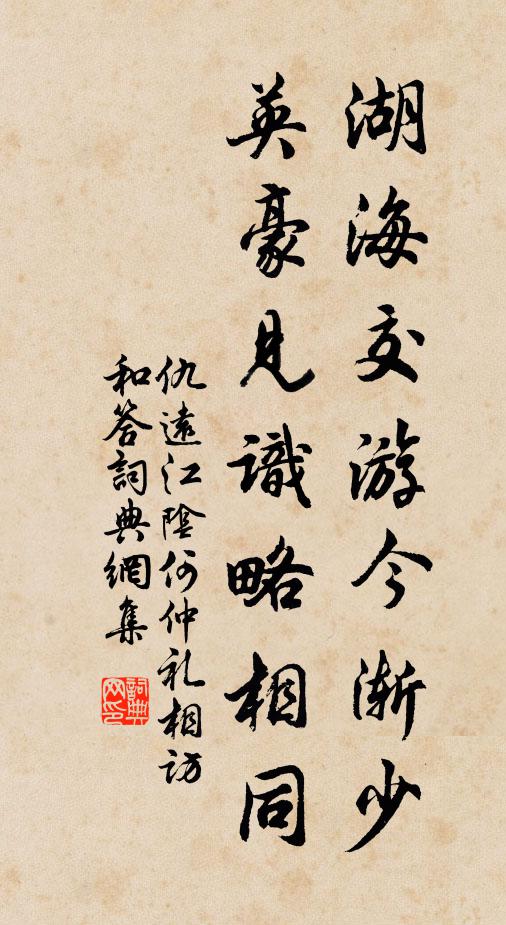 湖海交游今渐少
英豪見識略相同
仇遠江陰何仲礼相访
和答詞典網集
詞典网印